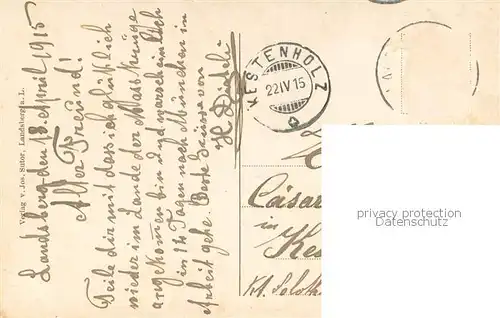 Verlag v. Jos. Sutor, Landsberg a. L.
Landsberg den 18. April 1915
Alter Freund!
Teile dir mit dass ich glücklich
wieder im Lande der Mass Krüge
angekommen bin und warscheinlich
in 14 Tagen nach München in
Arbeit gehe. Beste Grüsse von
H.
KESTENHOLZ
22 IV 15
Cäsar
in
Kes
Kt. Soloth
privacy protection
Datenschutz